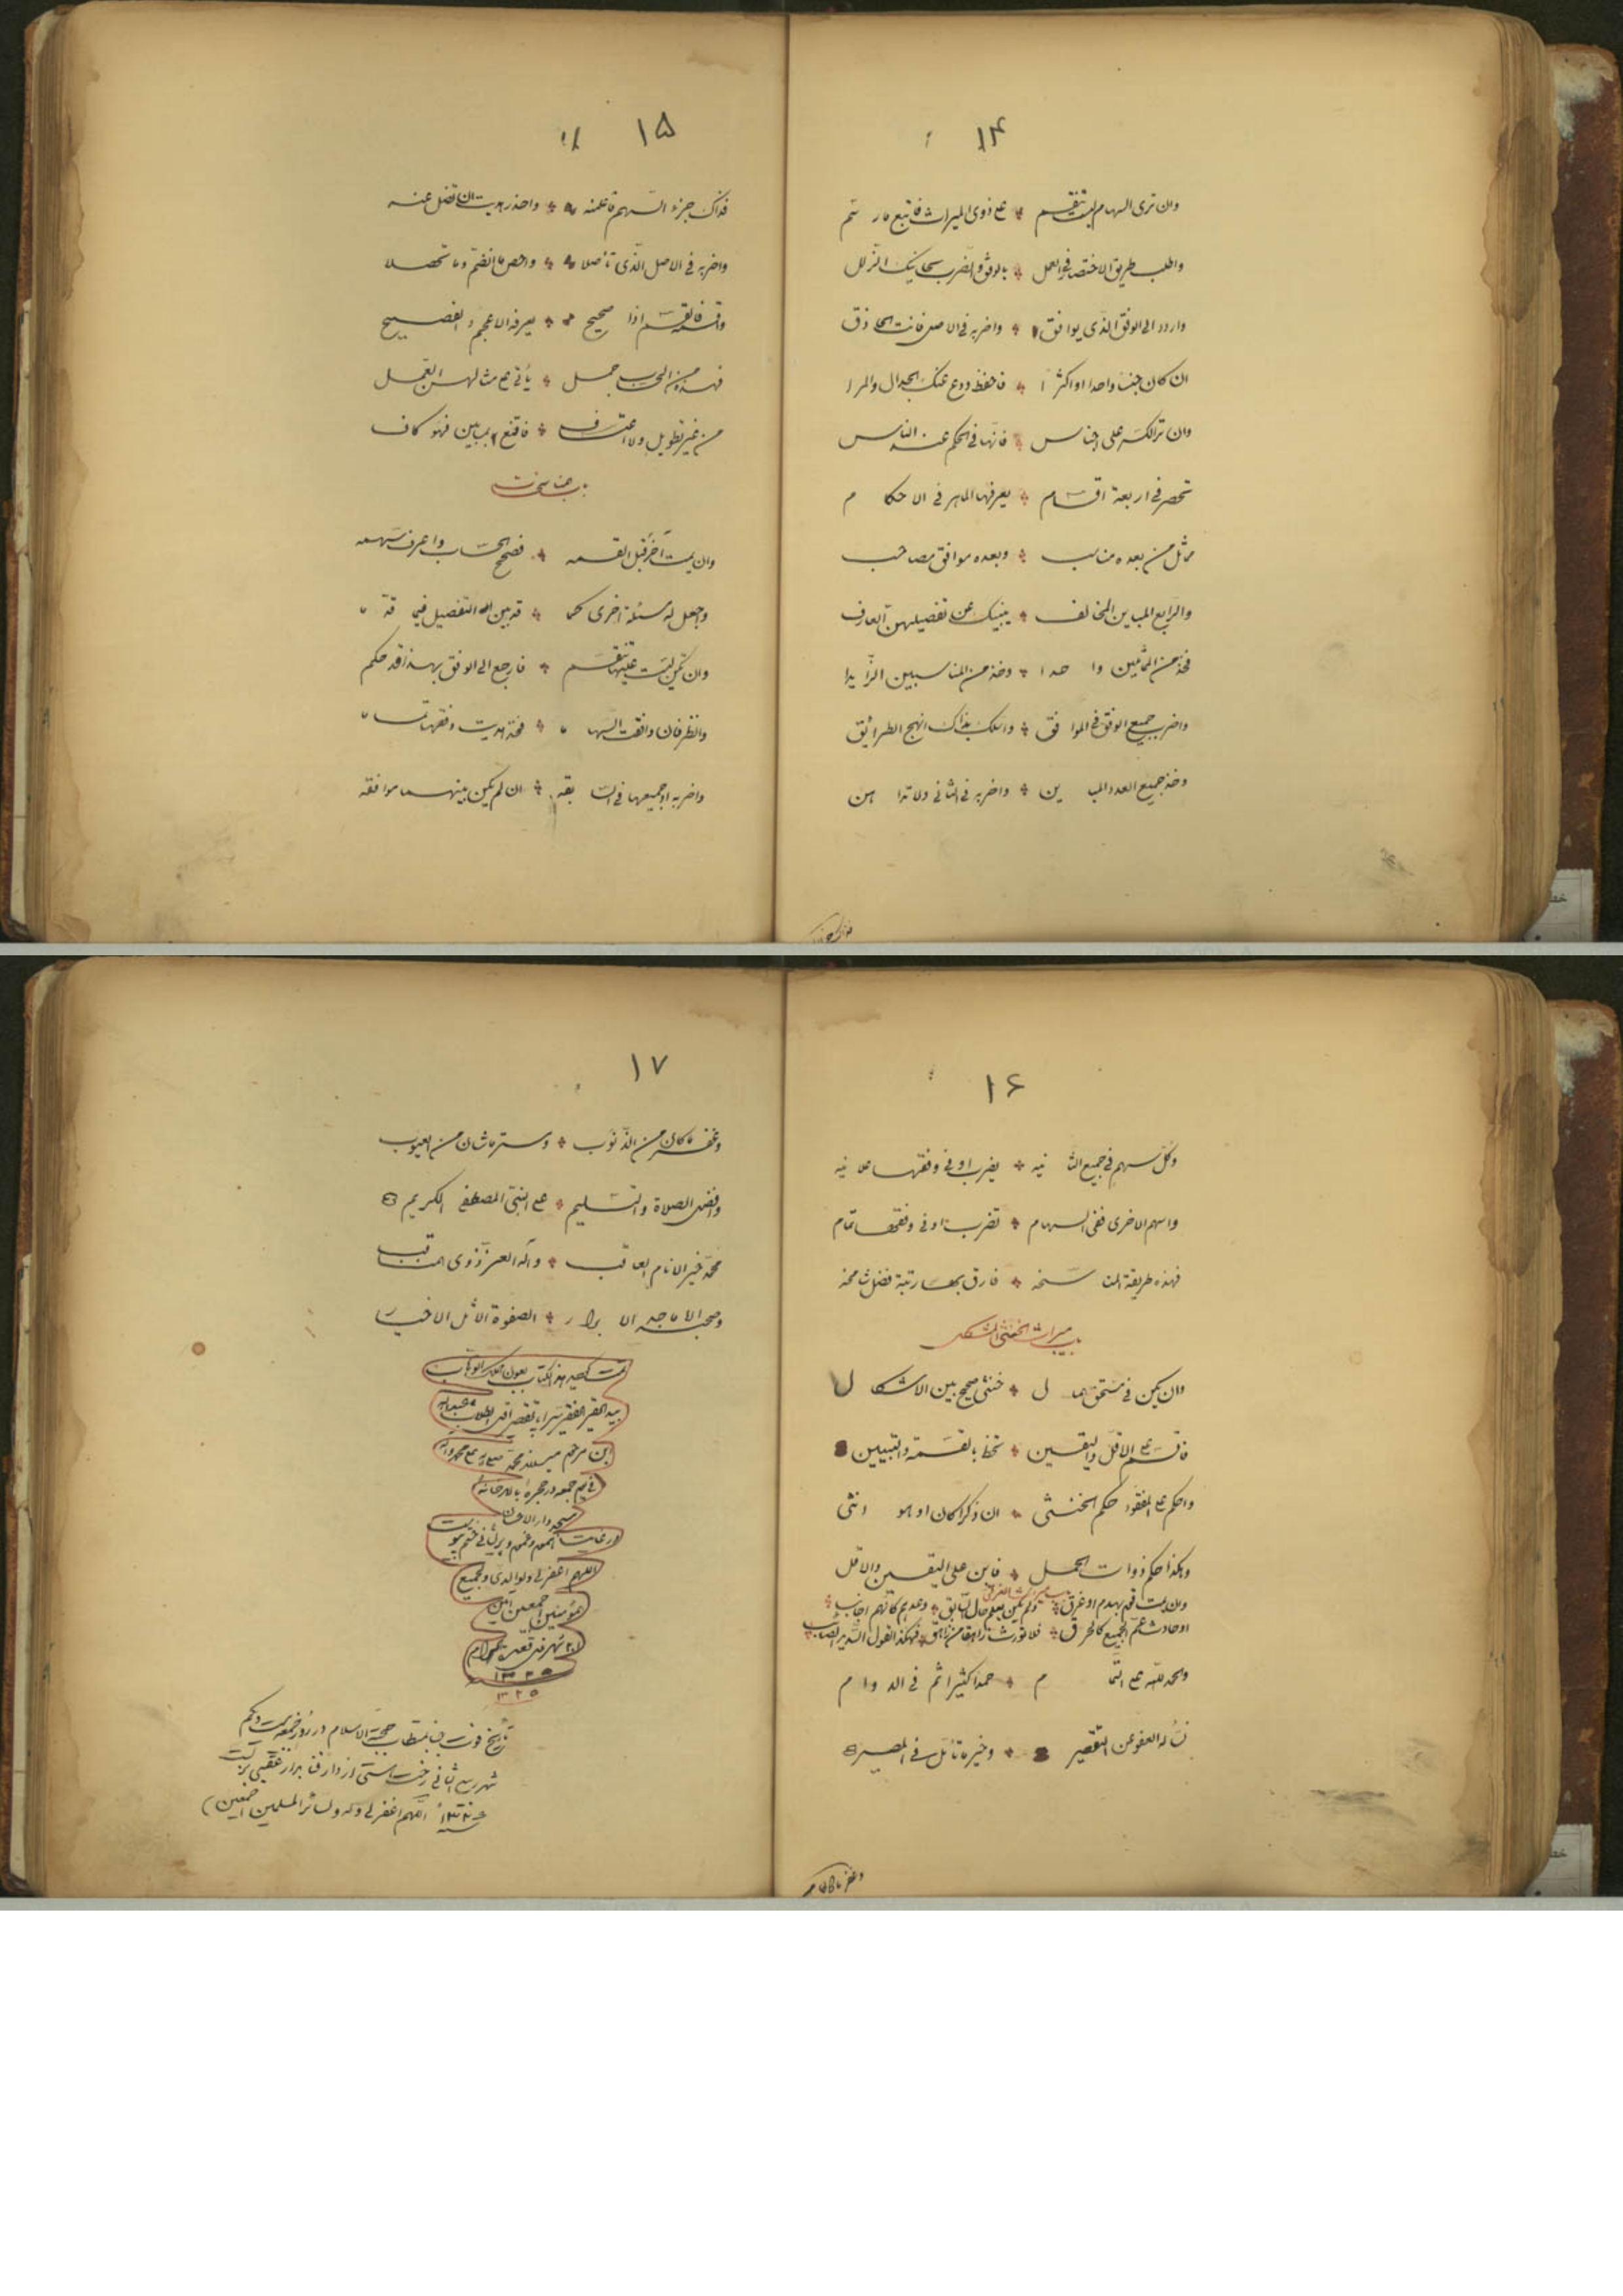 ۱۴
وان ترى السهام ليست تنقسم على ذوى الميراث فاتبع ما رسم
واطلب طريق الاختصار فى العمل بالوفق والضرب يجانبك الزلل
واردد الى الوفق الذى يوافق واضربه فى الاصل فانت الحاذق
ان كان جنسا واحدا او اكثرا فاحفظ ودع عنك الجدال والمرا
وان تر الكسر على اجناس فانها فى الحكم عند الناس
تحصر فى اربعة اقسام يعرفها الماهر فى الاحكام
مماثل من بعده مناسب وبعده موافق مصاحب
والرابع المباين المخالف ينبيك عن تفصيلهن العارف
فخذ من المماثلين واحدا وخذ من المناسبين الزايدا
واضرب جميع الوفق فى الموافق واسلك بذاك انهج الطرائق
وخذ جميع العدد المباين واضربه فى الثانى ولا تداهن
۱۵
فذاك جزء السهم فاعلمنه واحذر هديت ان تضل عنه
واضربه فى الاصل الذى تأصلا واحص ما انضم وما تحصلا
واقسمه فالقسم اذا صحيح يعرفه الاعجم والفصيح
فهذه من الحساب جمل يأتى على مثالهن العمل
من غير تطويل ولا اعتساف فاقنع بما بين فهو كاف
باب مناسخات
وان يمت آخر قبل القسمه فصحح الحساب واعرف سهمه
واجعل له مسئلة اخرى كما قد بين التفصيل فيما قدما
وان تكن ليست عليها تنقسم فارجع الى الوفق بهذا قد حكم
وانظر فان وافقت السهاما فخذ هديت وفقها تماما
واضربه او جميعها فى السابقه ان لم يكن بينهما موافقه
۱۶
وكل سهم فى جميع الثانيه يضرب او فى وفقها علانيه
واسهم الاخرى ففى السهام تضرب او فى وفقها تمام
فهذه طريقة المناسخه فارق بها رتبة فضل شامخه
باب ميراث الخنثى المشكل
وان يكن فى مستحق المال خنثى صحيح بين الاشكال
فاقسم على الاقل واليقين تحظ بالقسمة والتبيين
واحكم على المفقود حكم الخنثى ان ذكرا كان او هو انثى
وهكذا حكم ذوات الحمل فابن على اليقين والاقل
وان يمت قوم بهدم او غرق ولم يكن يعلم حال السابق وعدهم كانهم اجانب
او حادث عم الجميع كالحرق فلا تورث زاهقا من زاهق فهكذا القول السديد الصائب
والحمد لله على التمام حمدا كثيرا تم فى الدوام
نسأله العفو عن التقصير وخير ما نأمل فى المصير
۱۷
وغفر ما كان من الذنوب وستر ما شان من العيوب
وافضل الصلاة والتسليم على النبى المصطفى الكريم
محمد خير الانام العاقب وآله الغر ذوى المناقب
وصحبه الاماجد الابرار الصفوة الاثل الاخيار
تمت هذا الكتاب بعون ملك الوهاب
بيد الحقير الفقير تقصير اقل الطلاب عبد الله
ابن مرحوم محمد
فى يوم جمعه در حجره بالاخانه
مسجد دار الاحسان
اللهم اغفر لى ولوالدى ولجميع
المؤمنين اجمعين آمين
شهر ذى قعدة الحرام
۱۳۲۵
۱۳۲۵
تاريخ فوت جناب مستطاب حجة الاسلام در روز جمعه بيست ويكم
شهر ربيع الثانى رخت هستى از دار فنا بدار عقبى
اللهم اغفر لى وله ولسائر المسلمين اجمعين